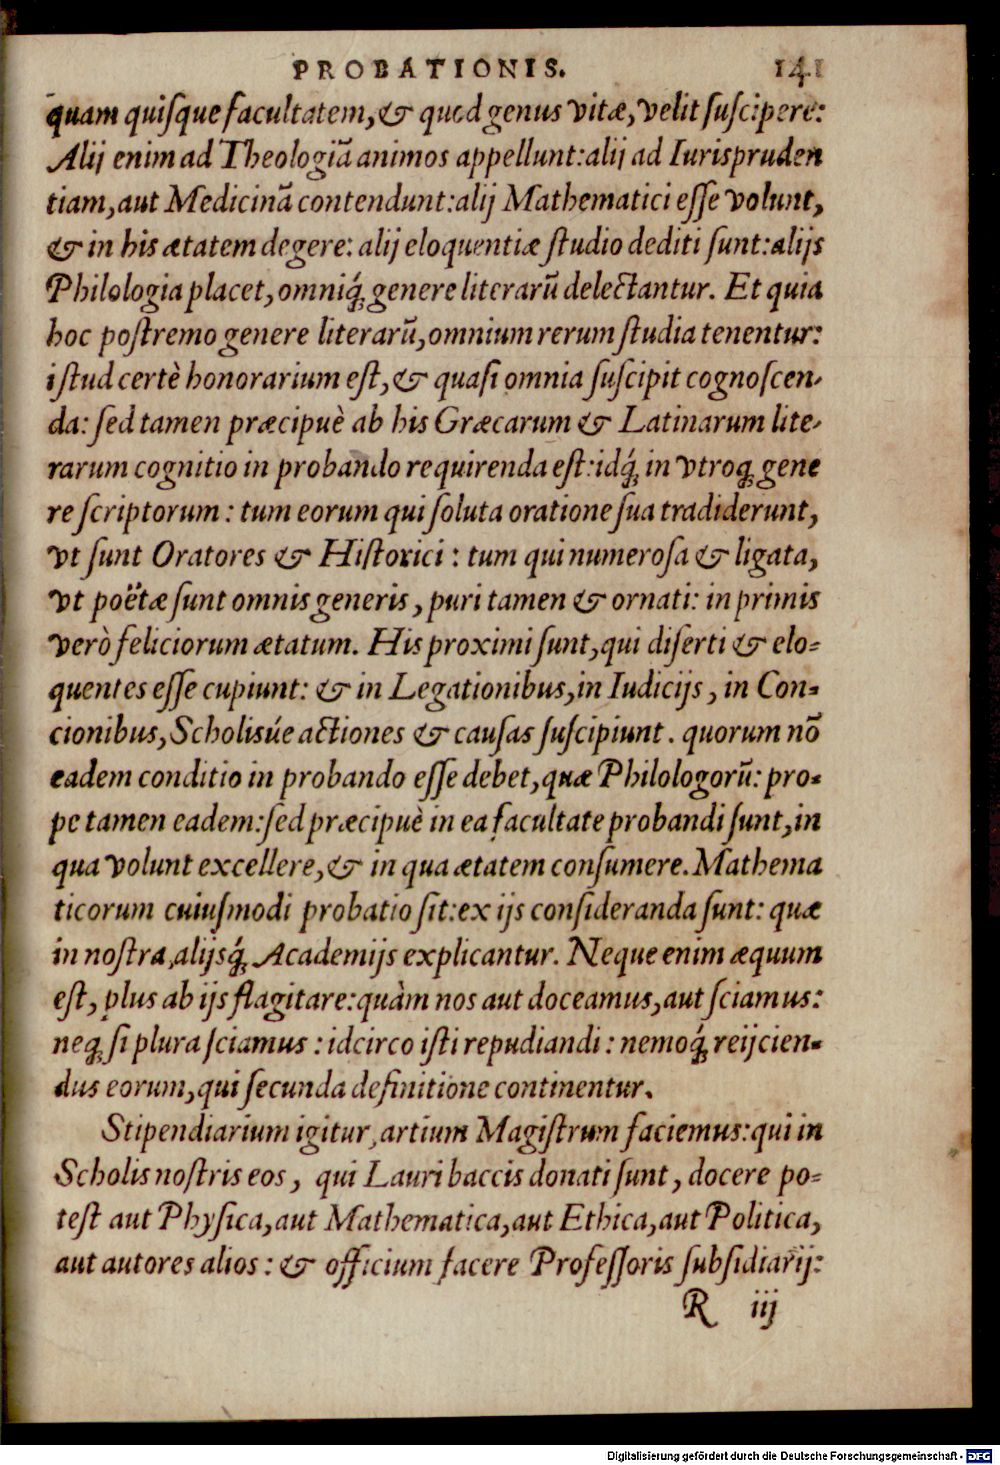 PROBATIONIS. 141
quam quiſque facultatem, & quod genus vitæ, velit ſuſcipere:
Alij enim ad Theologiā animos appellunt: alij ad Iurispruden
tiam, aut Medicinā contendunt: alij Mathematici eſſe volunt,
& in his ætatem degere: alij eloquentiæ ſtudio dediti ſunt: alijs
Philologia placet, omniq́; genere literarū delectantur. Et quia
hoc poſtremo genere literarū, omnium rerum ſtudia tenentur:
iſtud certè honorarium eſt, & quaſi omnia ſuſcipit cognoſcen-
da: ſed tamen præcipuè ab his Græcarum & Latinarum lite-
rarum cognitio in probando requirenda eſt: idq́; in vtroq; gene
re ſcriptorum: tum eorum qui ſoluta oratione ſua tradiderunt,
vt ſunt Oratores & Hiſtorici: tum qui numeroſa & ligata,
vt poëtæ ſunt omnis generis, puri tamen & ornati: in primis
verò feliciorum ætatum. His proximi ſunt, qui diſerti & elo-
quentes eſſe cupiunt: & in Legationibus, in Iudicijs, in Con-
cionibus, Scholisúe actiones & cauſas ſuſcipiunt. quorum nō
eadem conditio in probando eſſe debet, quæ Philologorū: pro-
pe tamen eadem: ſed præcipuè in ea facultate probandi ſunt, in
qua volunt excellere, & in qua ætatem conſumere. Mathema
ticorum cuiuſmodi probatio ſit: ex ijs conſideranda ſunt: quæ
in noſtra, alijsq́; Academijs explicantur. Neque enim æquum
eſt, plus ab ijs flagitare: quàm nos aut doceamus, aut ſciamus:
neq; ſi plura ſciamus: idcirco iſti repudiandi: nemoq́; reijcien-
dus eorum, qui ſecunda definitione continentur.
Stipendiarium igitur, artium Magiſtrum faciemus: qui in
Scholis noſtris eos, qui Lauri baccis donati ſunt, docere po-
teſt aut Phyſica, aut Mathematica, aut Ethica, aut Politica,
aut autores alios: & officium facere Profeſſoris ſubſidiarij:
R iij
Digitalisierung gefördert durch die Deutsche Forschungsgemeinschaft - DFG